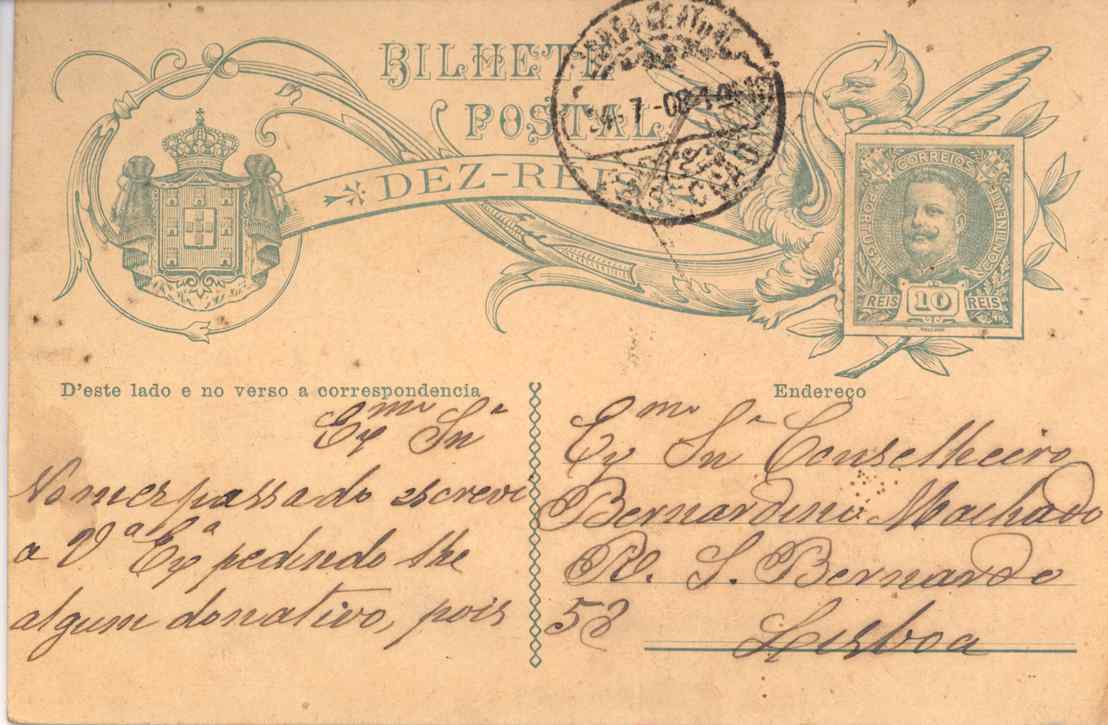 BILHETE
POSTAL
DEZ-REIS
CORREIOS
PORTUGAL
CONTINENTE
REIS 10 REIS
CENTRAL
7-08
SECÇÃO
D'este lado e no verso a correspondencia
Exmo Snr
No mes passado escrevi
a V.a Ex.a pedindo lhe
algum donativo, pois
Endereço
Exmo Snr Conselheiro
Bernardino Machado
R. S. Bernardo
58
Lisboa